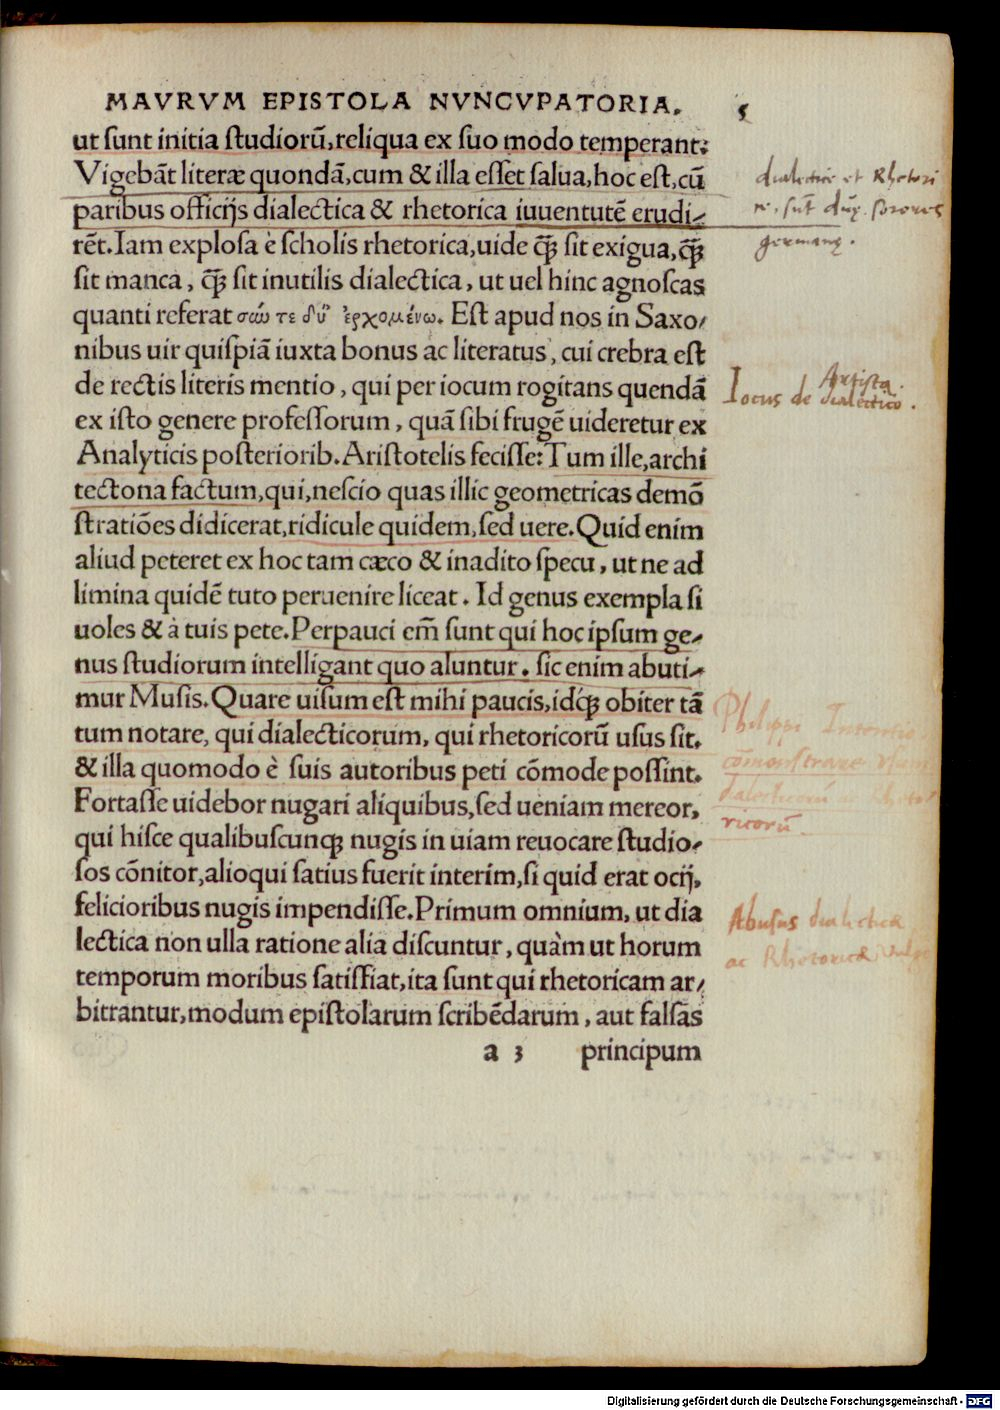 MAVRVM EPISTOLA NVNCVPATORIA. 5
ut sunt initia studiorũ, reliqua ex suo modo temperant:
Vigebãt literæ quondã, cum & illa esset salua, hoc est, cũ
paribus officijs dialectica & rhetorica iuuentutẽ erudi-
rẽt. Iam explosa è scholis rhetorica, uide q̃ꝫ sit exigua, q̃ꝫ
sit manca, q̃ꝫ sit inutilis dialectica, ut uel hinc agnoscas
quanti referat σαώ τε δύ' ἐρχομένω. Est apud nos in Saxo-
nibus uir quispiã iuxta bonus ac literatus, cui crebra est
de rectis literis mentio, qui per iocum rogitans quendã
ex isto genere professorum, quã sibi frugẽ uideretur ex
Analyticis posteriorib. Aristotelis fecisse: Tum ille, archi
tectona factum, qui, nescio quas illic geometricas demõ
stratiões didicerat, ridicule quidem, sed uere. Quid enim
aliud peteret ex hoc tam cæco & inadito specu, ut ne ad
limina quidẽ tuto peruenire liceat. Id genus exempla si
uoles & à tuis pete. Perpauci em̃ sunt qui hoc ipsum ge-
nus studiorum intelligant quo aluntur. sic enim abuti-
mur Musis. Quare uisum est mihi paucis, idq́ꝫ obiter tã
tum notare, qui dialecticorum, qui rhetoricorũ usus sit.
& illa quomodo è suis autoribus peti cõmode possint.
Fortasse uidebor nugari aliquibus, sed ueniam mereor,
qui hisce qualibuscunqꝫ nugis in uiam reuocare studio-
sos cõnitor, alioqui satius fuerit interim, si quid erat ocij,
felicioribus nugis impendisse. Primum omnium, ut dia
lectica non ulla ratione alia discuntur, quàm ut horum
temporum moribus satisfiat, ita sunt qui rhetoricam ar-
bitrantur, modum epistolarum scribẽdarum, aut falsas
a 3 principum
dialectice et Rhetori
sũt duę sorores
germanę.
Artista.
Iocus de dialectico.
Philippi Intentio
cõmonstrare usum
dialecticorũ ac Rheto
ricorũ.
Abusus dialecticæ
ac Rhetoricæ
Digitalisierung gefördert durch die Deutsche Forschungsgemeinschaft - DFG